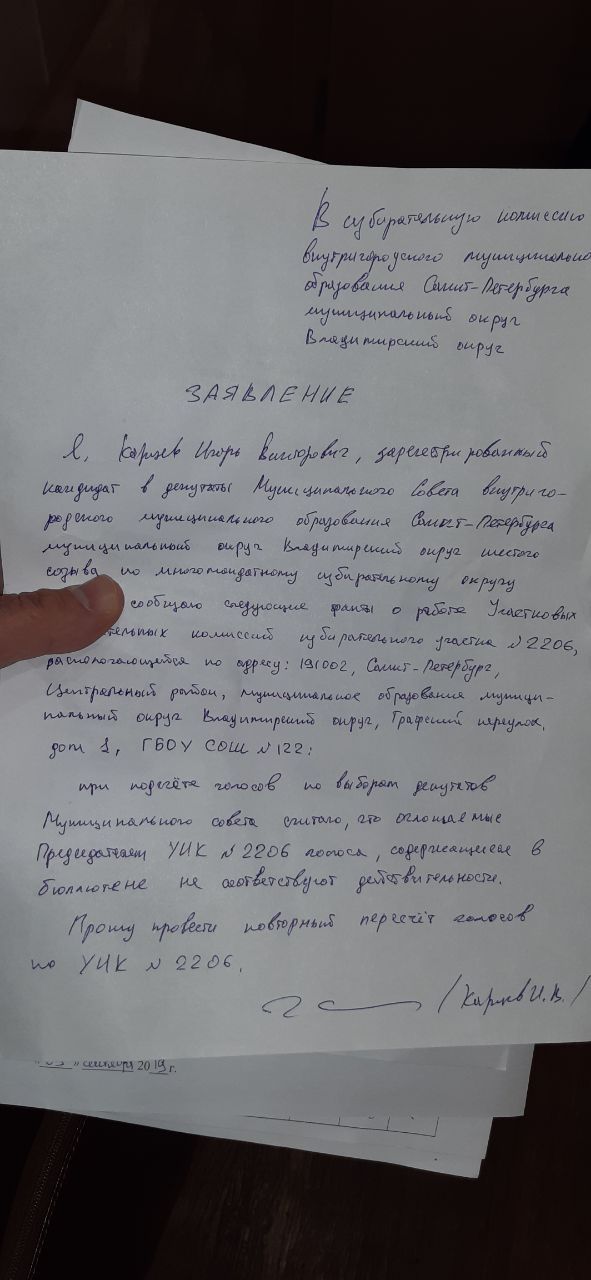 В избирательную комиссию
внутригородского муниципально
образования Санкт-Петербурга
муниципальный округ
Владимирский округ
ЗАЯВЛЕНИЕ
Я, Карцев Игорь Викторович, зарегестрированный
кандидат в депутаты Муниципального Совета внутриго-
родского муниципального образования Санкт-Петербурга
муниципальный округ Владимирский округ шестого
созыва по многомандатному избирательному округу
сообщаю следующие факты о работе Участковых
тельных комиссий избирательного участка №2206,
распологающейся по адресу: 191002, Санкт-Петербург,
Центральный район, муниципальное образование муници-
пальный округ Владимирский округ, Графский переулок,
дом 1, ГБОУ СОШ №122:
при подсчёте голосов по выборам депутатов
Муниципального совета считаю, что оглашаемые
Председателем УИК №2206 голоса, содержащиеся в
бюллютене не соответствуют действительности.
Прошу провести повторный пересчёт голосов
по УИК №2206.
/Карцев И.В./
сентября 2019 г.